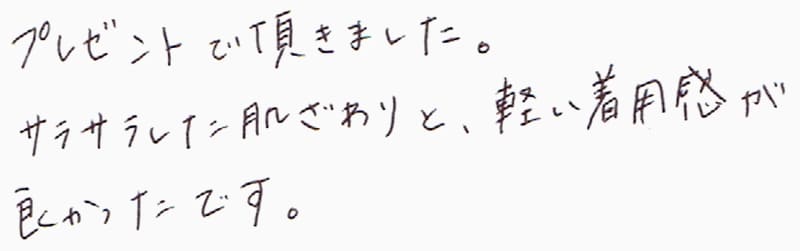 プレゼントで頂きました。
サラサラした肌ざわりと、軽い着用感が
良かったです。